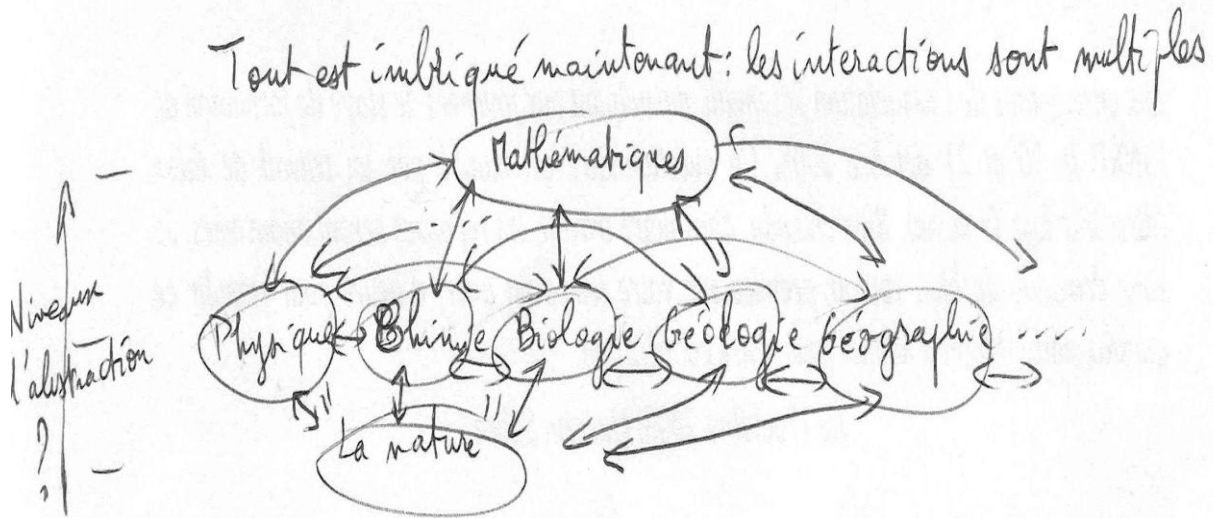 Tout est imbriqué maintenant: les interactions sont multiples
Mathématiques
Niveaux
d'abstraction
?
Physique
Chimie
Biologie
Géologie
Géographie
"
"
La nature